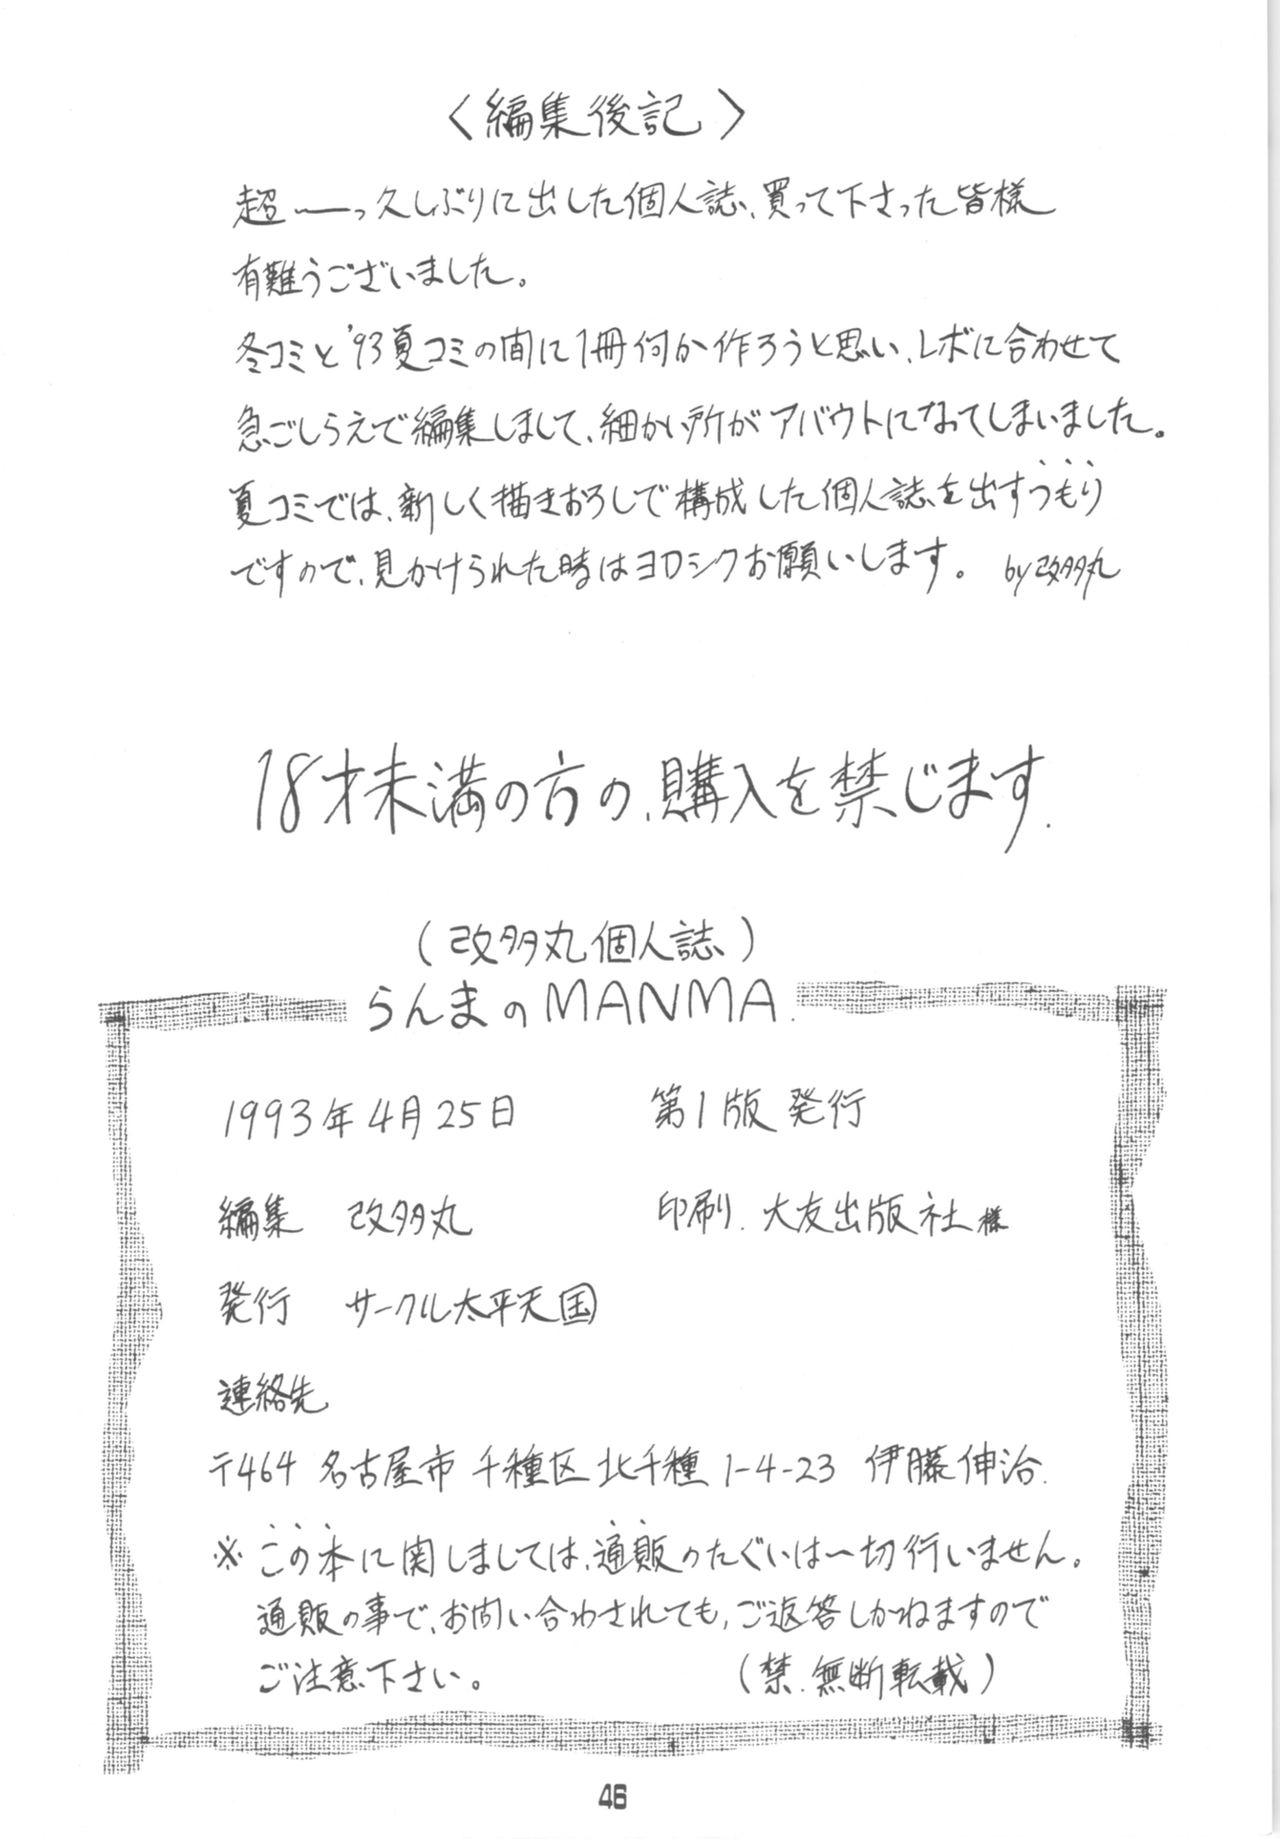 〈編集後記〉
超ーーっ久しぶりに出した個人誌、買って下さった皆様
有難うございました。
冬コミと'93夏コミの間に1冊何か作ろうと思い、レボに合わせて
急ごしらえで編集しまして、細かい所がアバウトになってしまいました。
夏コミでは、新しく描きおろしで構成した個人誌を出すつもり
ですので、見かけられた時はヨロシクお願いします。 by改多丸
18才未満の方の、購入を禁じます.
(改多丸個人誌)
らんまのMANMA.
1993年4月25日 第1版発行
編集 改多丸 印刷.大友出版社様
発行 サークル太平天国
連絡先
〒464 名古屋市千種区北千種1-4-23 伊藤伸治.
※この本に関しましては、通販のたぐいは一切行いません。
通販の事で、お問い合わされても、ご返答しかねますので
ご注意下さい。 (禁.無断転載)
46